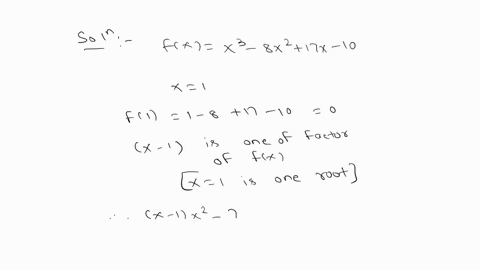 Solⁿ:- f(x) = x³ - 8x² + 17x - 10
x = 1
f(1) = 1 - 8 + 17 - 10 = 0
(x-1) is one of factor
of f(x)
[x = 1 is one root]
∴ (x-1) x² - 7